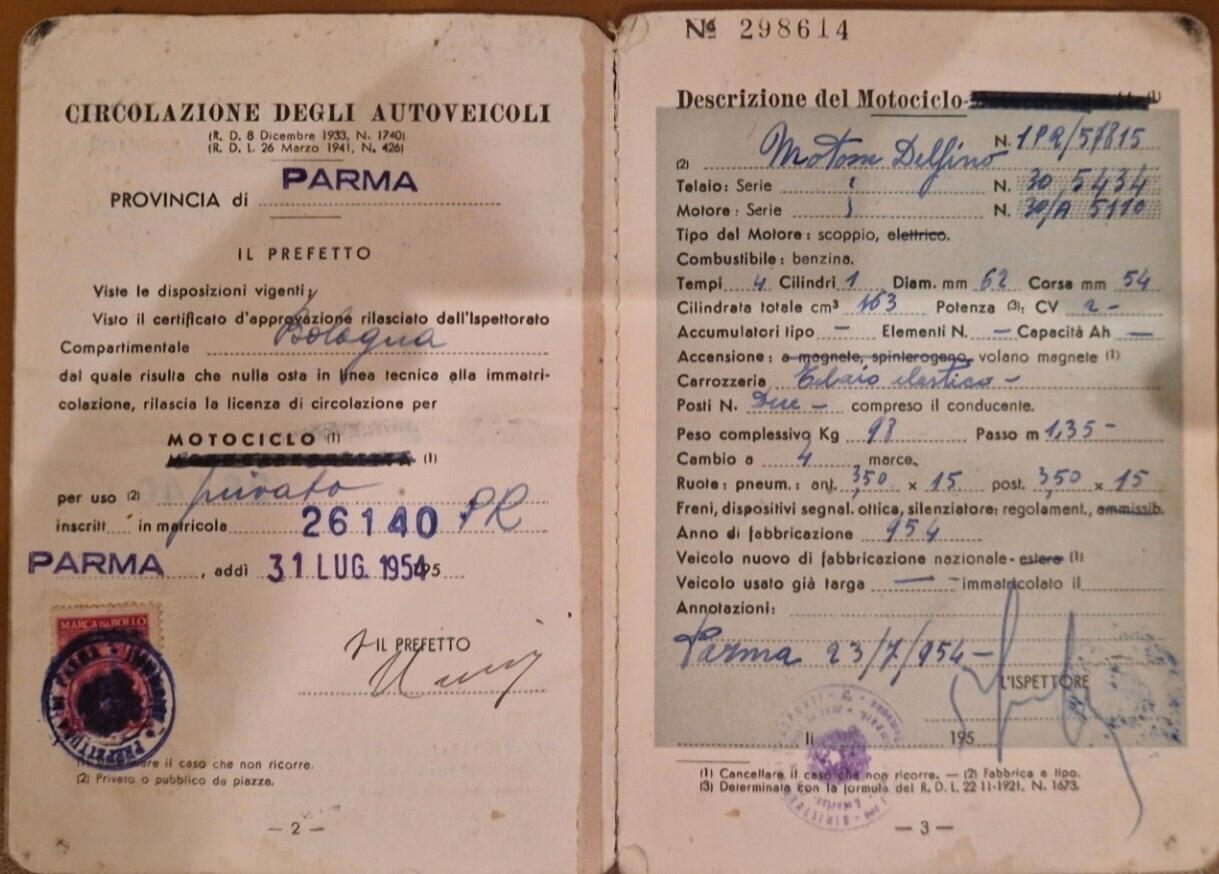 CIRCOLAZIONE DEGLI AUTOVEICOLI
(R. D. 8 Dicembre 1933, N. 1740)
(R. D. L. 26 Marzo 1941, N. 426)
PROVINCIA di PARMA
IL PREFETTO
Viste le disposizioni vigenti;
Visto il certificato d'approvazione rilasciato dall'Ispettorato
Compartimentale Bologna
dal quale risulta che nulla osta in linea tecnica alla immatri-
colazione, rilascia la licenza di circolazione per
MOTOCICLO (1)
(1)
per uso (2) privato
inscritt in matricola 26140 PR
PARMA, addì 31 LUG. 1954 195
IL PREFETTO
MARCA DA BOLLO
re il caso che non ricorre.
(2) Privato o pubblico da piazza.
— 2 —
Nº 298614
Descrizione del Motociclo (1)
N. 1PR/57815
(2) Motom Delfino
Telaio: Serie N. 30 5434
Motore: Serie N. 30/A 5110
Tipo del Motore: scoppio, elettrico.
Combustibile: benzina.
Tempi 4 Cilindri 1 Diam. mm 62 Corsa mm 54
Cilindrata totale cm³ 163 Potenza (3): CV 2 -
Accumulatori tipo — Elementi N. — Capacità Ah —
Accensione: a magnete, spinterogeno, volano magnete (1)
Carrozzeria Telaio elastico -
Posti N. Due - compreso il conducente.
Peso complessivo Kg 98 Passo m 1,35 -
Cambio a 4 marce.
Ruote: pneum.: ant. 3,50 × 15 post. 3,50 × 15
Freni, dispositivi segnal. ottica, silenziatore: regolament., ammissib.
Anno di fabbricazione 954
Veicolo nuovo di fabbricazione nazionale - estera (1)
Veicolo usato già targa — immatricolato il
Annotazioni:
Parma 23/7/954 -
L'ISPETTORE
li 195
(1) Cancellare il caso che non ricorre. — (2) Fabbrica e tipo.
(3) Determinata con la formula del R. D. L. 22-11-1921, N. 1673.
— 3 —